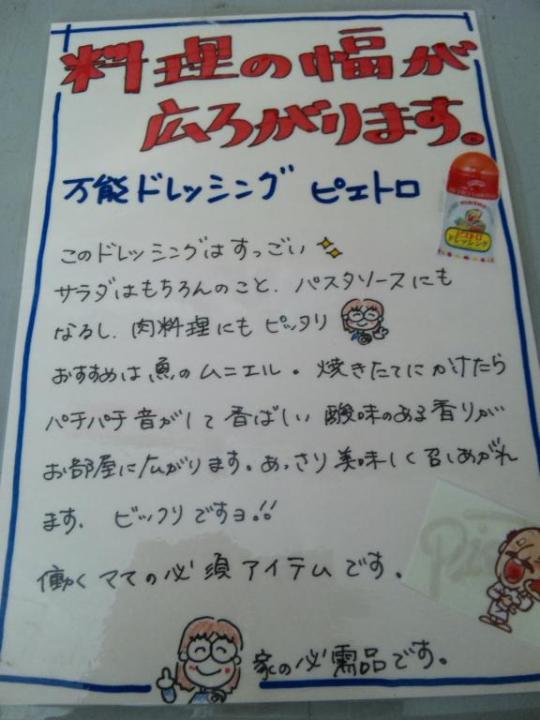 料理の幅が
広ろがります。
万能ドレッシング ピエトロ
このドレッシングはすっごい
サラダはもちろんのこと、パスタソースにも
なるし、肉料理にもピッタリ
おすすめは魚のムニエル。焼きたてにかけたら
パチパチ音がして香ばしい酸味のある香りが
お部屋に広がります。あっさり美味しく召しあがれ
ます。ビックリですョ!!
働くママの必須アイテムです。
家の必需品です。
ピエトロ
ドレッシング